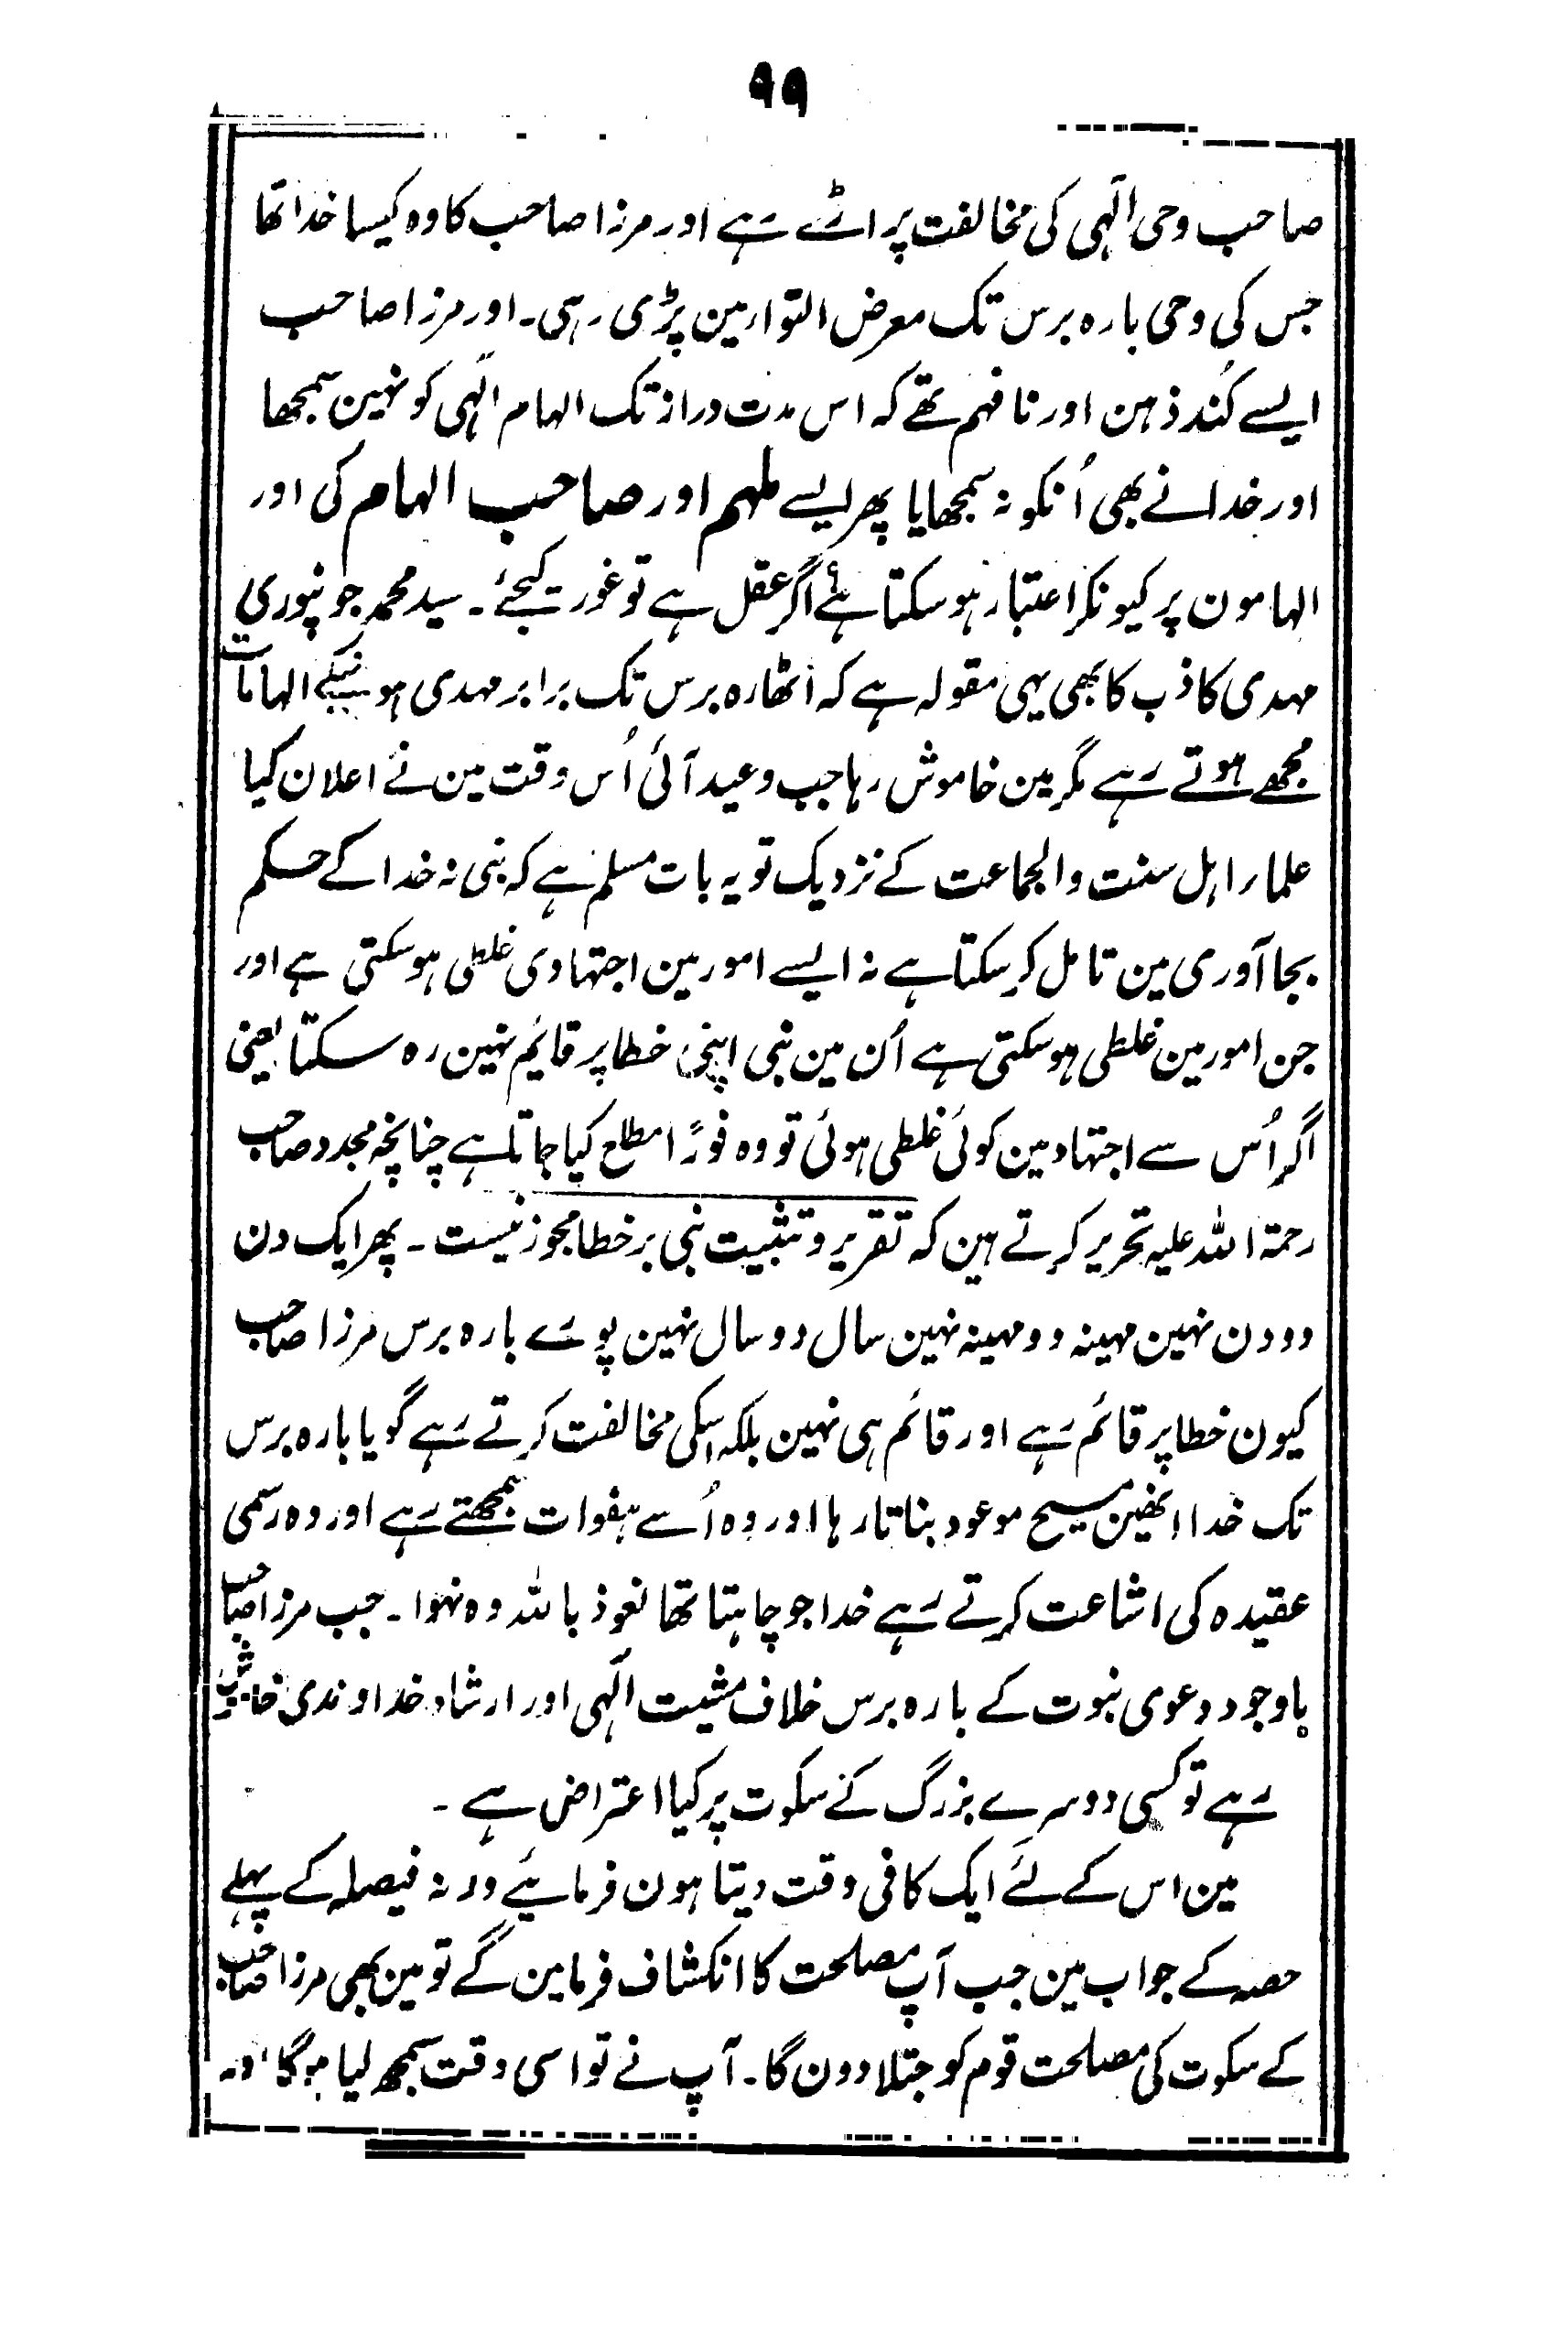 ۹۹
صاحب وحی الٓہی کی مخالفت پر اڑے رہے اور مرزا صاحب کا وہ کیسا خدا تھا
جس کی وحی بارہ برس تک معرض التوا مین پڑی رہی۔ اور مرزا صاحب
ایسے کُند ذہن اور نا فہم تھے کہ اس مدت دراز تک الہام الٓہی کو نہین سمجھا
اور خدا نے بھی اُنکو نہ سمجھایا پھر ایسے ملہم اور صاحب الہام کی اور
الہامون پر کیونکر اعتبار ہو سکتا ہے اگر عقل ہے تو غور کیجئے۔ سید محمد جونپوری
مہدی کاذب کا بھی یہی مقولہ ہے کہ اٹھارہ برس تک برابر مہدی ہونیکے الہامات
مجھے ہوتے رہے مگر مین خاموش رہا جب وعید آئی اُس وقت مین نے اعلان کیا
علماء اہل سنت والجماعت کے نزدیک تو یہ بات مسلم ہے کہ نبی نہ خدا کے حکم
بجا آوری مین تامل کر سکتا ہے نہ ایسے امور مین اجتہادی غلطی ہو سکتی ہے اور
جن امور مین غلطی ہو سکتی ہے اُن مین نبی اپنی خطا پر قائم نہین رہ سکتا یعنی
اگر اُس سے اجتہاد مین کوئی غلطی ہوئی تو وہ فورًا مطلع کیا جاتا ہے چنانچہ مجدد صاحب
رحمۃ اللہ علیہ تحریر کرتے ہین کہ تقریر و تثبیت نبی بر خطا مجوز نیست۔ پھر ایک دن
دو دن نہین مہینہ دو مہینہ نہین سال دو سال نہین پورے بارہ برس مرزا صاحب
کیون خطا پر قائم رہے اور قائم ہی نہین بلکہ اسکی مخالفت کرتے رہے گویا بارہ برس
تک خدا انھین مسیح موعود بناتا رہا اور وہ اُسے ہفوات سمجھتے رہے اور وہ رسمی
عقیدہ کی اشاعت کرتے رہے خدا جو چاہتا تھا نعوذ باللہ وہ نہوا۔ جب مرزا صاحب
باوجود دعوی نبوت کے بارہ برس خلاف مشیت الٓہی اور ارشاد خداوندی خاموش
رہے تو کسی دوسرے بزرگ کے سکوت پر کیا اعتراض ہے۔
مین اس کے لئے ایک کافی وقت دیتا ہون فرمایئے ورنہ فیصلہ کے پہلے
حصہ کے جواب مین جب آپ مصلحت کا انکشاف فرماین گے تو مین بھی مرزا صاحب
کے سکوت کی مصلحت قوم کو جتلا دون گا۔ آپ نے تو اسی وقت سمجھ لیا ہوگا اور